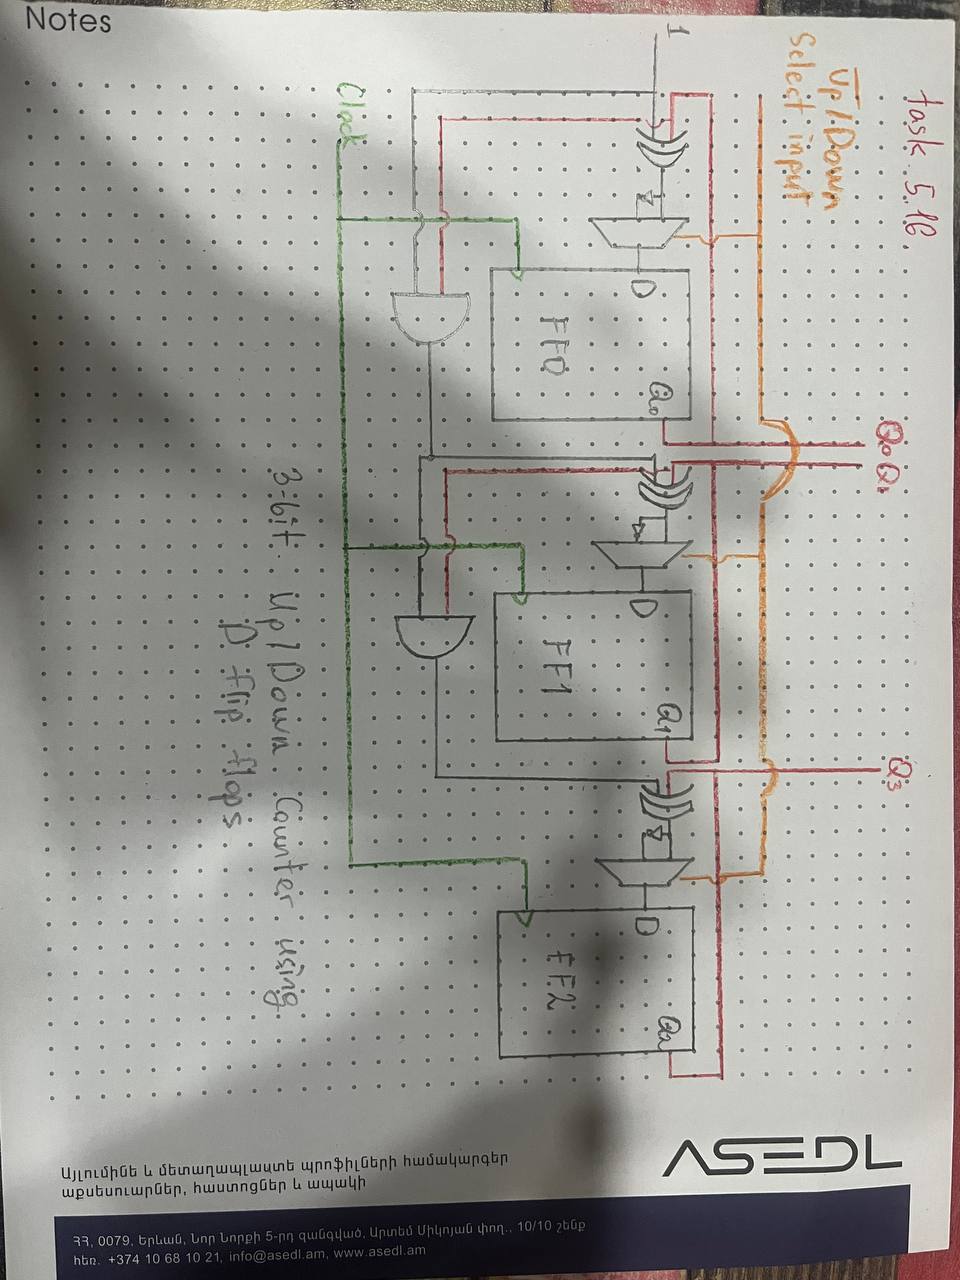 Notes
task 5.16.
Up/Down
Select input
1
Clock
D
FF0
Q₀
Q₀ Q₁
D
FF1
Q₁
Q₃
D
FF2
Q₂
3-bit Up/Down Counter using
D flip flops
ASEDL
Այլումինե և մետաղապլաստե պրոֆիլների համակարգեր
աքսեսուարներ, հաստոցներ և ապակի
ՀՀ, 0079, Երևան, Նոր Նորքի 5-րդ զանգված, Արտեմ Միկոյան փող., 10/10 շենք
հեռ. +374 10 68 10 21, info@asedl.am, www.asedl.am